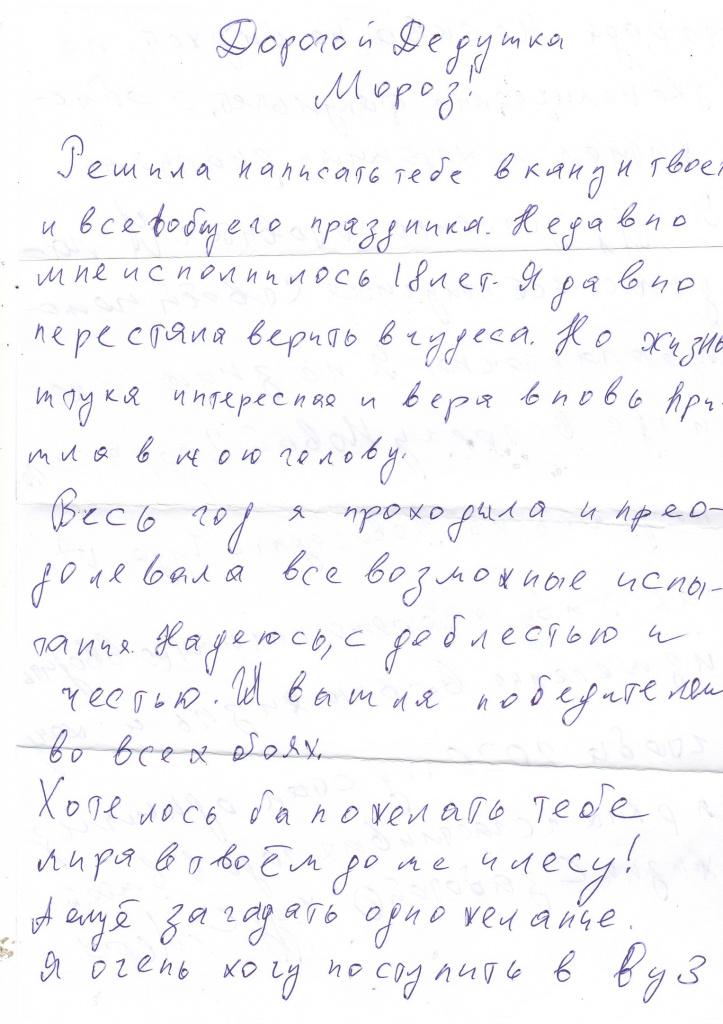 Дорогой Дедушка
Мороз!
Решила написать тебе в канун твоег
и всеобщего праздника. Недавно
мне исполнилось 18 лет. Я давно
перестала верить в чудеса. Но жизнь
штука интересная и вера вновь при-
шла в мою голову.
Весь год я проходила и прео-
долевала все возможные испы-
тания. Надеюсь, с доблестью и
честью. И вышла победителем
во всех боях.
Хотелось бы пожелать тебе
мира в твоём доме и лесу!
А ещё загадать одно желание.
Я очень хочу поступить в Вуз